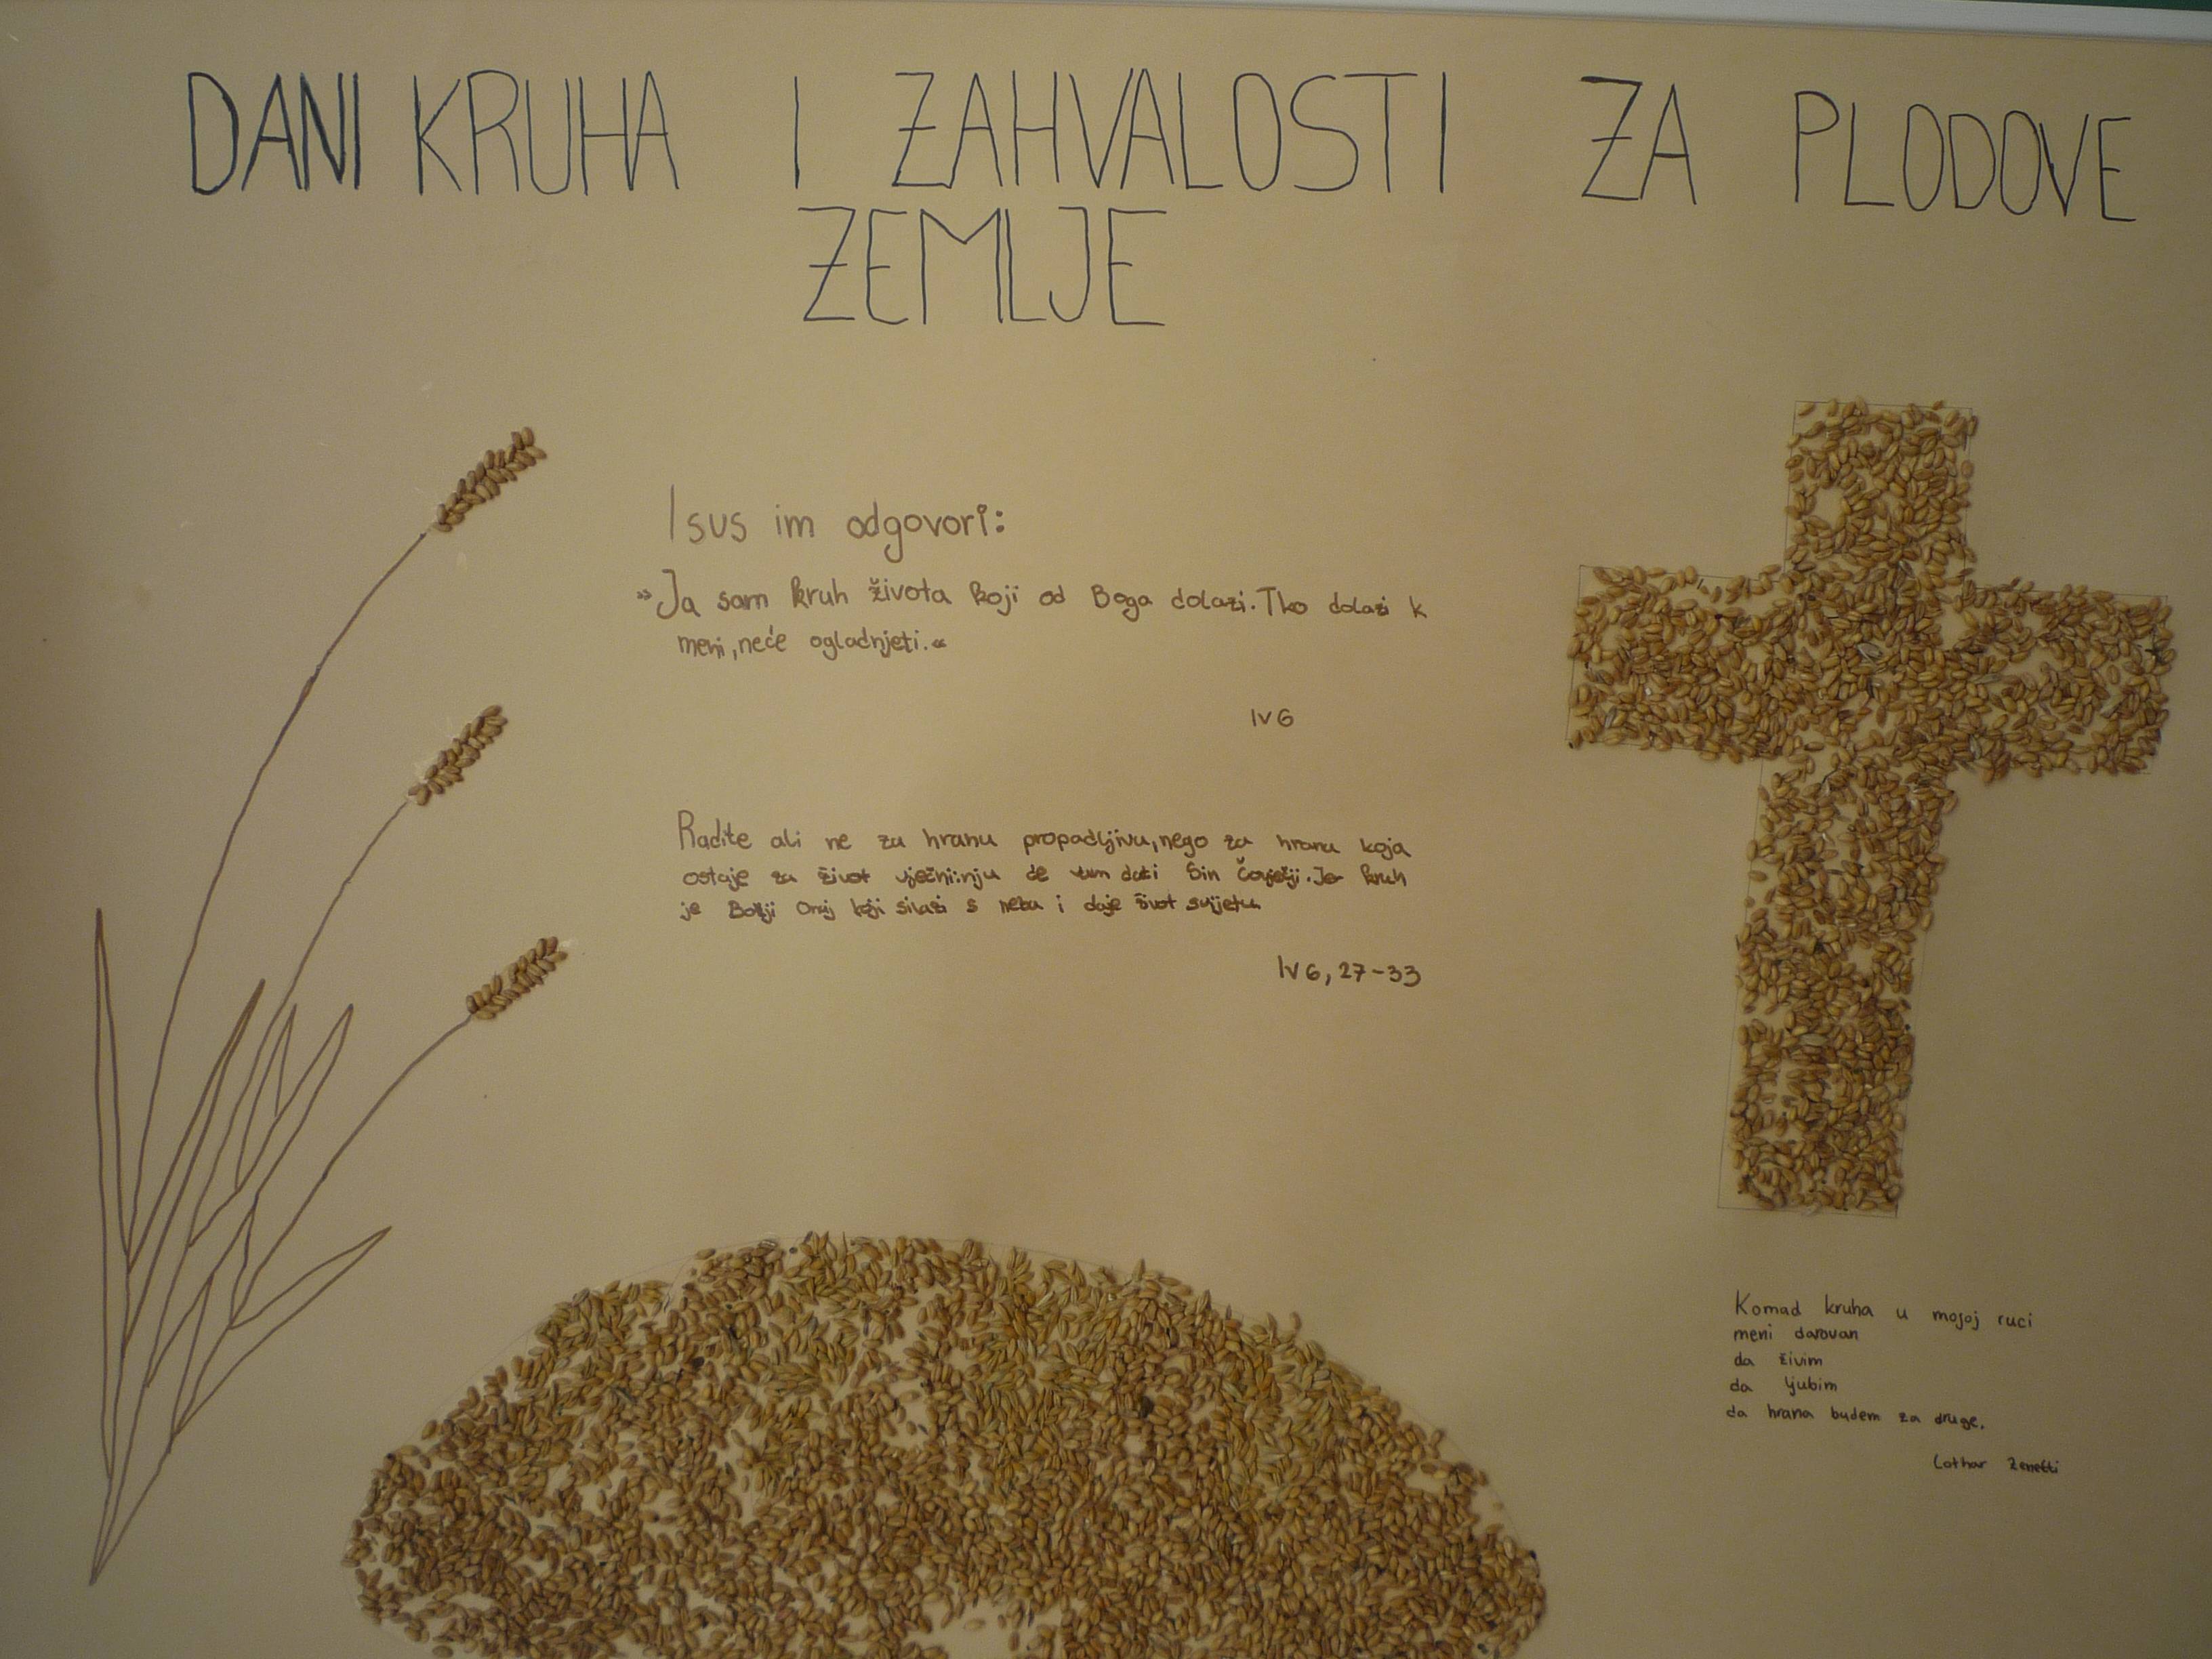 DANI KRUHA I ZAHVALOSTI ZA PLODOVE
ZEMLJE
Isus im odgovori:
»Ja sam kruh života koji od Boga dolazi. Tko dolazi k
meni, neće ogladnjeti.«
Iv 6
Radite ali ne za hranu propadljivu, nego za hranu koja
ostaje za život vječni: nju će vam dati Sin Čovječji. Jer kruh
je Božji Onaj koji silazi s neba i daje život svijetu
Iv 6, 27-33
Komad kruha u mojoj ruci
meni darovan
da živim
da ljubim
da hrana budem za druge.
Lothar Zenetti